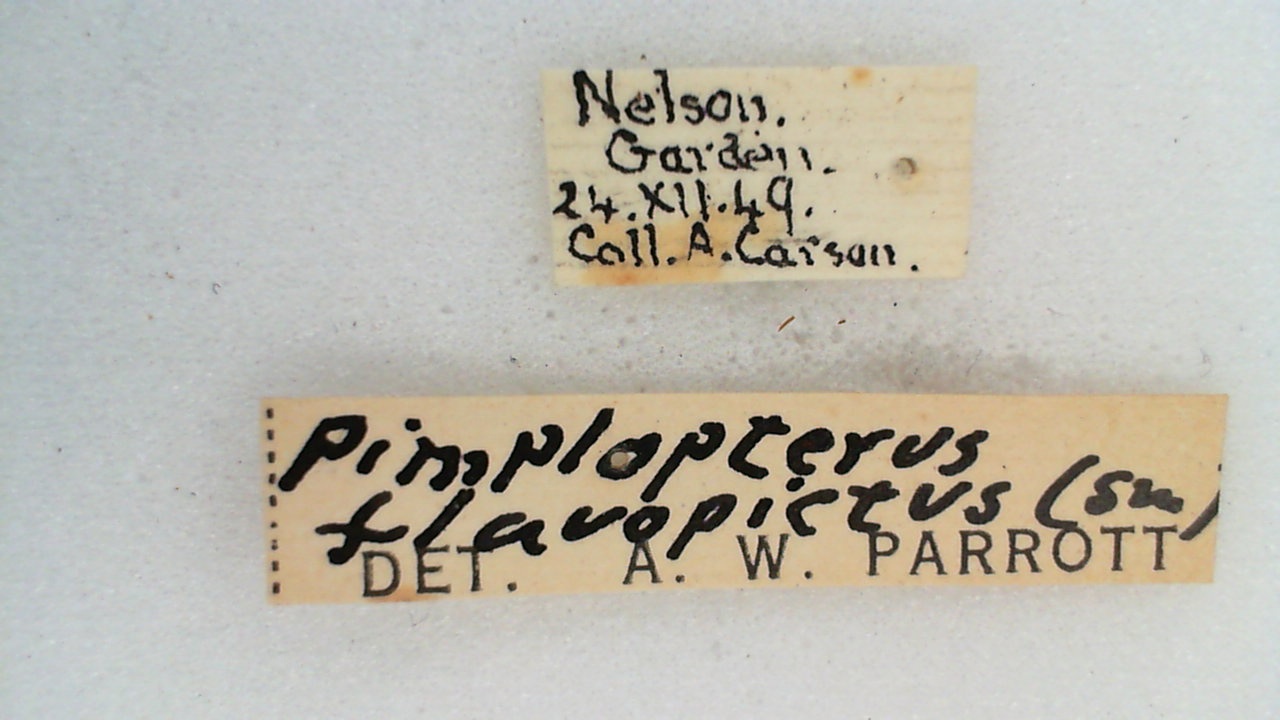 Nelson.
Garden.
24.XII.49.
Coll. A. Carson.
Pimplopterus
flavopictus (Sm)
DET. A. W. PARROTT